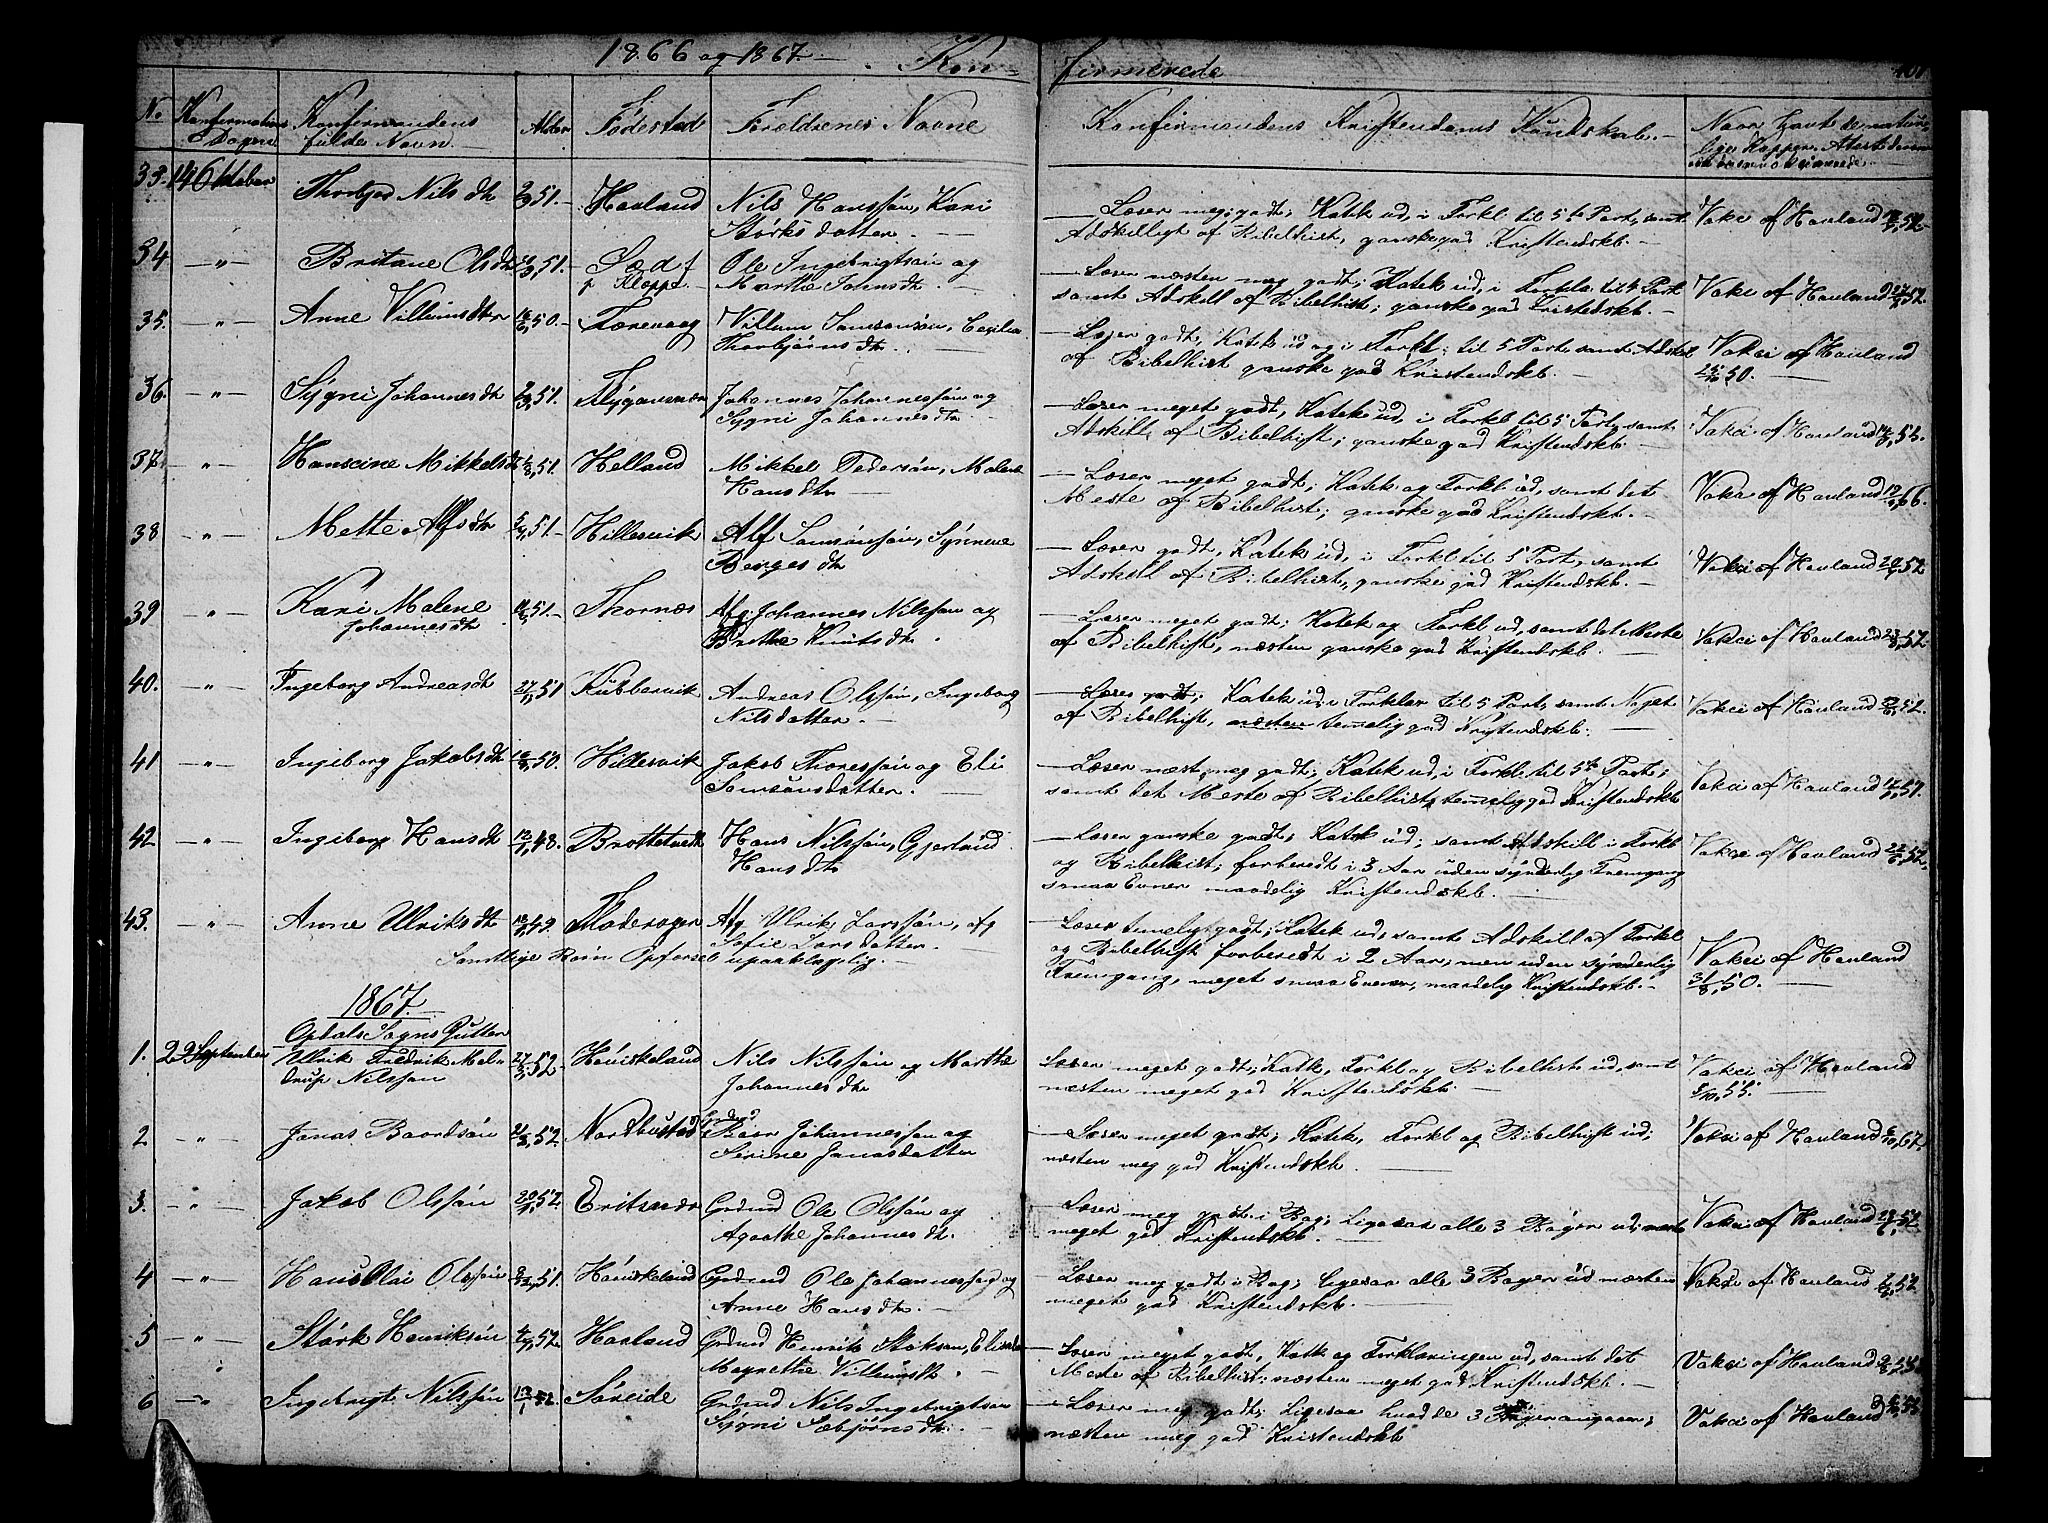 1866 og 1867. Kon- firmerede
No Konfirmations Dagen Konfirmandens fulde Navn. Alder Fødested Forældrenes Navne Konfirmandens Kristendoms Kundskab. Naar havt de naturlige Kopper
33. 14 Oktober Thorbjør Nilsdtr 51. Havland Nils Hanssøn, Kari
Størksdatter.
Læser meg. godt, Katek ud, i Forkl til 5te Part, samt
Adskilligt af Bibelhist, ganske god Kristendskb.
Vakci af Havland
34 -"- Britane Olsdtr 51. Ole Ingebrigtsøn og
Marthe Johnsdtr.
Læser næsten meg godt; Katek ud, i Forkla til 4 Part
samt Adskill af Bibelhist; ganske god Kristedskb.
Vakci af Havland
35. -"- Anne Villumsdtr 50. Færevaag Villum Samsonsøn, Cecilia
Thorbjørnsdtr.
Læser godt, Katek ud og i Forkl. til 5 Part, samt Adskil
af Bibelhist ganske god Kristendskb.
Vakci af Havland
50.
36. -"- Sygni Johannesdtr 51. Flygansvær Johannes Johannessøn og
Sygni Johannesdtr
Læser meget godt, Katek ud, i Forkl til 5 Part, samt
Adskill af Bibelhist; ganske god Kristendskb.
Vakci af Havland 52.
37. -"- Hanseine Mikkelsdtr 51. Helland Mikkel Pedersøn, Malene
Hansdtr
Læser meget godt; Katek og Forkl ud, samt det
Meste af Bibelhist; ganske god Kristendskb.
Vakci af Havland 66.
38 -"- Mette Alfsdtr 51. Hillesvik Alf Samsonsøn, Synneve
Bergesdtr
Læser godt, Katek ud, i Forkl til 5 Part, samt
Adskill af Bibelhist, ganske god Kristendskb.
Vakci af Havland 52
39 -"- Kari Malene
Johannesdtr. 51. Thornæs Afg Johannes Nilssøn og
Brithe Knutsdtr.
Læser meget godt; Katek og Forkl ud, samt det Meste
af Bibelhist, næsten ganske god Kristendskb.
Vakci af Havland 52.
40. -"- Ingeborg Andreasdtr 51 Kubbervik Andreas Olssøn, Ingeborg
Nilsdatter.
Læser godt; Katek ud, i Forklar til 5 Part, samt Noget
af Bibelhist, næsten temelig god Kristendskb.
Vakci af Havland 52.
41 -"- Ingeborg Jakobsdtr 50. Hillesvik Jakob Thoressøn og Eli
Samsonsdatter.
Læser næst, meg godt; Katek ud, i Forkl til 5te Part;
samt det Meste af Bibelhist; temelig god Kristendskb
Vakci af Havland
42 -"- Ingeborg Hansdtr 48. Brottetvedt Hans Nilssøn, Gjertrud
Hansdtr
Læser ganske godt; Katek ud; samt Adskill i Forkl
og Bibelhist; forberedt i 3 Aar uden synderlig Fremgang
smaa Evner maadelig Kristendskb.
Vakci af Havland 52.
43. -"- Anne Ulriksdtr Afg Ulrik Larssøn, afg
Sofie Larsdatter.
Samtlige Røin Opførsel upaaklagelig.
Læser temelig godt; Katek ud, samt Adskill af Forkl
og Bibelhist forberedt i 2 Aar; men uden synderlig
Fremgang, meget smaa Evner, maadelig Kristendskb.
Vakci af Havland
31/8, 50.
1867.
Opdals Sogns Gutter
1. 29 September Ulrik Fredrik Mel-
drup Nilssøn 52. Haviskeland Nils Nilssøn og Marthe
Johannesdtr
Læser meget godt; Katk, Forkl og Bibelhist ud, samt
næsten meget god Kristendskb.
Vakci af Havland
55.
2 -"- Jonas Baardsøn 52. Nordhustad Grdmd
Baar Johannessøn og
Serine Janasdatter
Læser meget godt; Katek, Forkl og Bibelhist ud;
næsten meg god Kristendskb.
Vakci af Havland 67.
3. -"- Jakob Olssøn 52. Grdmd Ole Olssøn og
Agaathe Johannesdtr.
Læser meg godt i Bog; Ligesaa alle 3 Bøger ud; næste
meget god Kristendskb.
Vakci af Havland 52.
4 -"- Hans Olai Olssøn 51. Haviskeland Grdmd Ole Johannessøn og
Anne Hansdtr.
Læser meg godt i Bog; Ligesaa alle 3 Bøger ud næsten
meget god Kristendskb.
Vakci af Havland 52
5 -"- Størk Henriksøn 52. Havland Grdmd Henrik Støksøn,
Magrethe Villumsdtr.
Læser meget godt, Katk og Forklaringen ud, samt det
Meste af Bibelhist; næsten meget god Kristendskb.
Vakci af Havland
6 -"- Ingebrigt Nilssøn 52. Søreide Grdmd Nils Ingebrigtsøn
Sygni Sæbjørnsdtr.
Læser meg godt; Ligesaa hvad de 3 Bøger angaar;
næsten meg god Kristendskb
Vakci af Havland